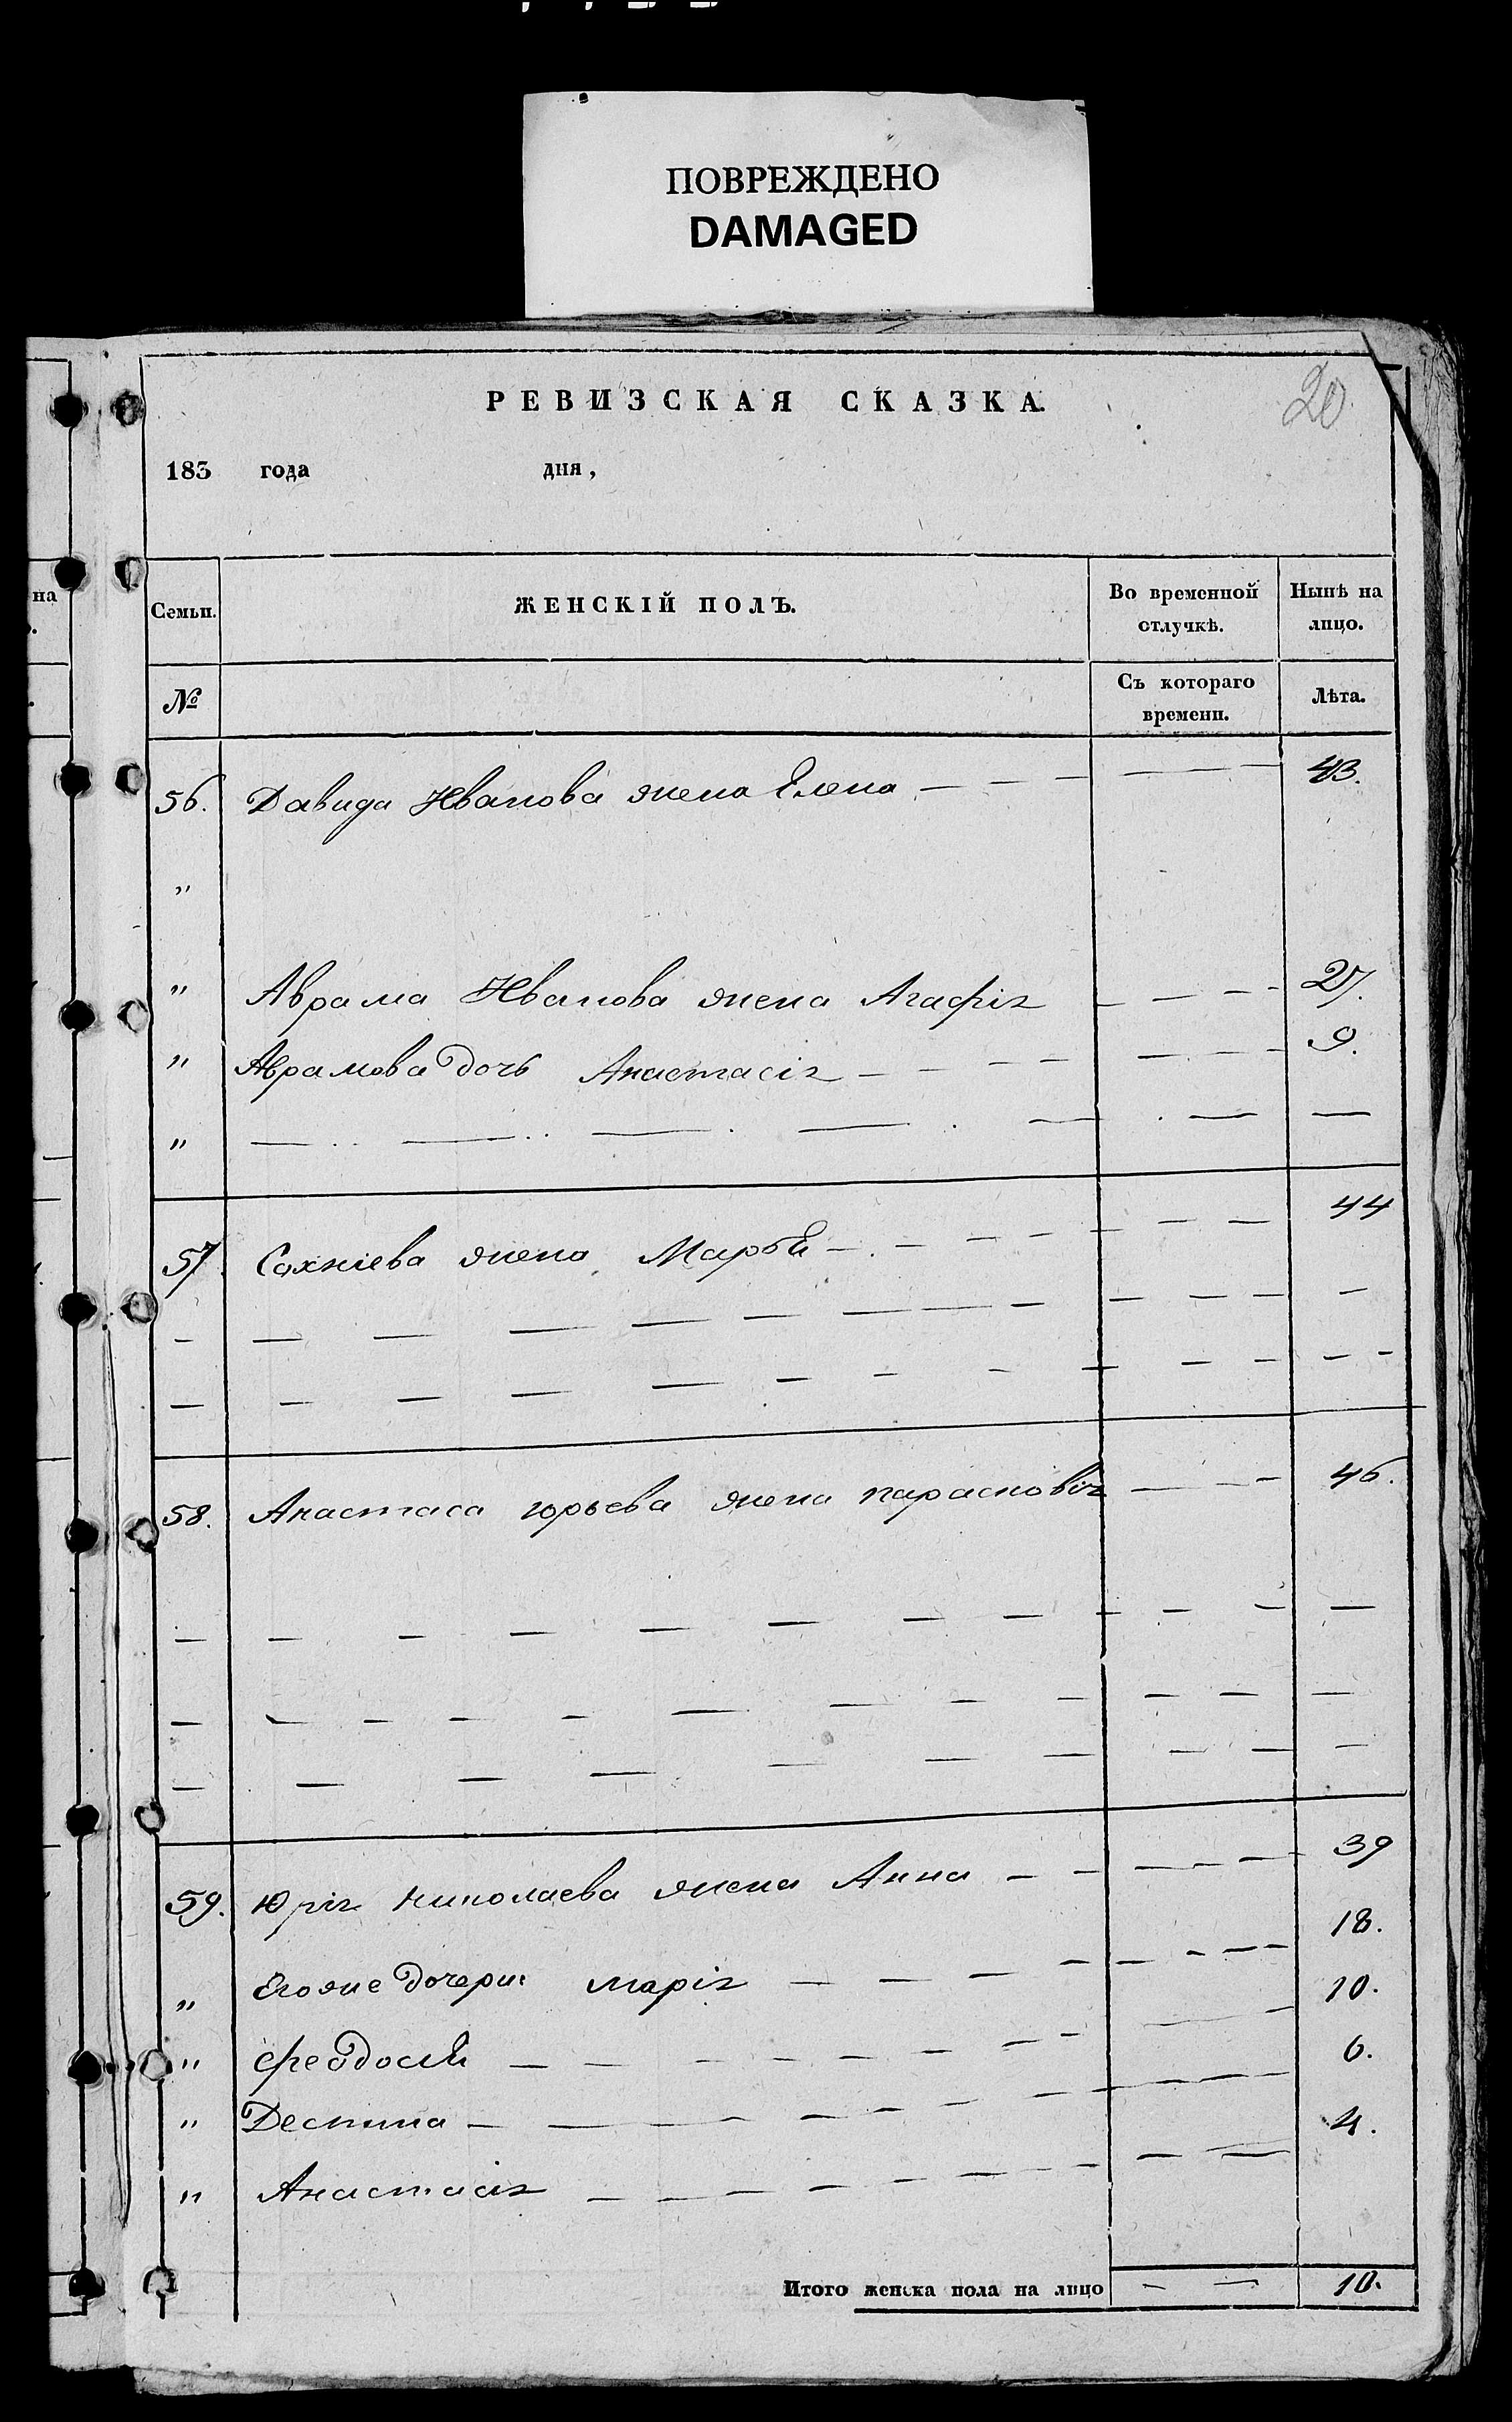 ПОВРЕЖДЕНО
DAMAGED
РЕВИЗСКАЯ СКАЗКА.
20
183 года дня,
на
Семьи. ЖЕНСКІЙ ПОЛЪ. Во временной отлучкѣ. Нынѣ на лицо.
№ Съ котораго времени. Лѣта.
56. Давида Иванова жена Елена — — — — 43.
"
" Аврама Иванова жена Агафія — — — 27.
" Аврамова дочь Анастасія — — — — 9.
" — — — — — — —
57. Сахнієва жена Марья — — — — 44
— — — — — — — —
— — — — — — — —
58. Анастаса юрьева жена парасковія — — — 46.
— — — — — — — —
— — — — — — — —
— — — — — — — —
59. Юрія николаева жена Анна — — — — 39
" Егоже дочери: марія — — — — 18.
" феодосія — — — — 10.
" Деспина — — — — 6.
" Анастасія — — — — 4.
Итого женска пола на лицо — — 10.